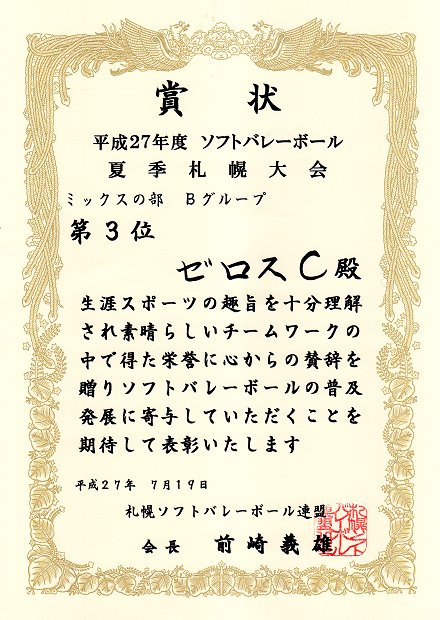 賞状
平成27年度 ソフトバレーボール
夏季札幌大会
ミックスの部 Bグループ
第3位
ゼロスC殿
生涯スポーツの趣旨を十分理解
され素晴らしいチームワークの
中で得た栄誉に心からの賛辞を
贈りソフトバレーボールの普及
発展に寄与していただくことを
期待して表彰いたします
平成27年 7月19日
札幌ソフトバレーボール連盟
会長 前崎義雄